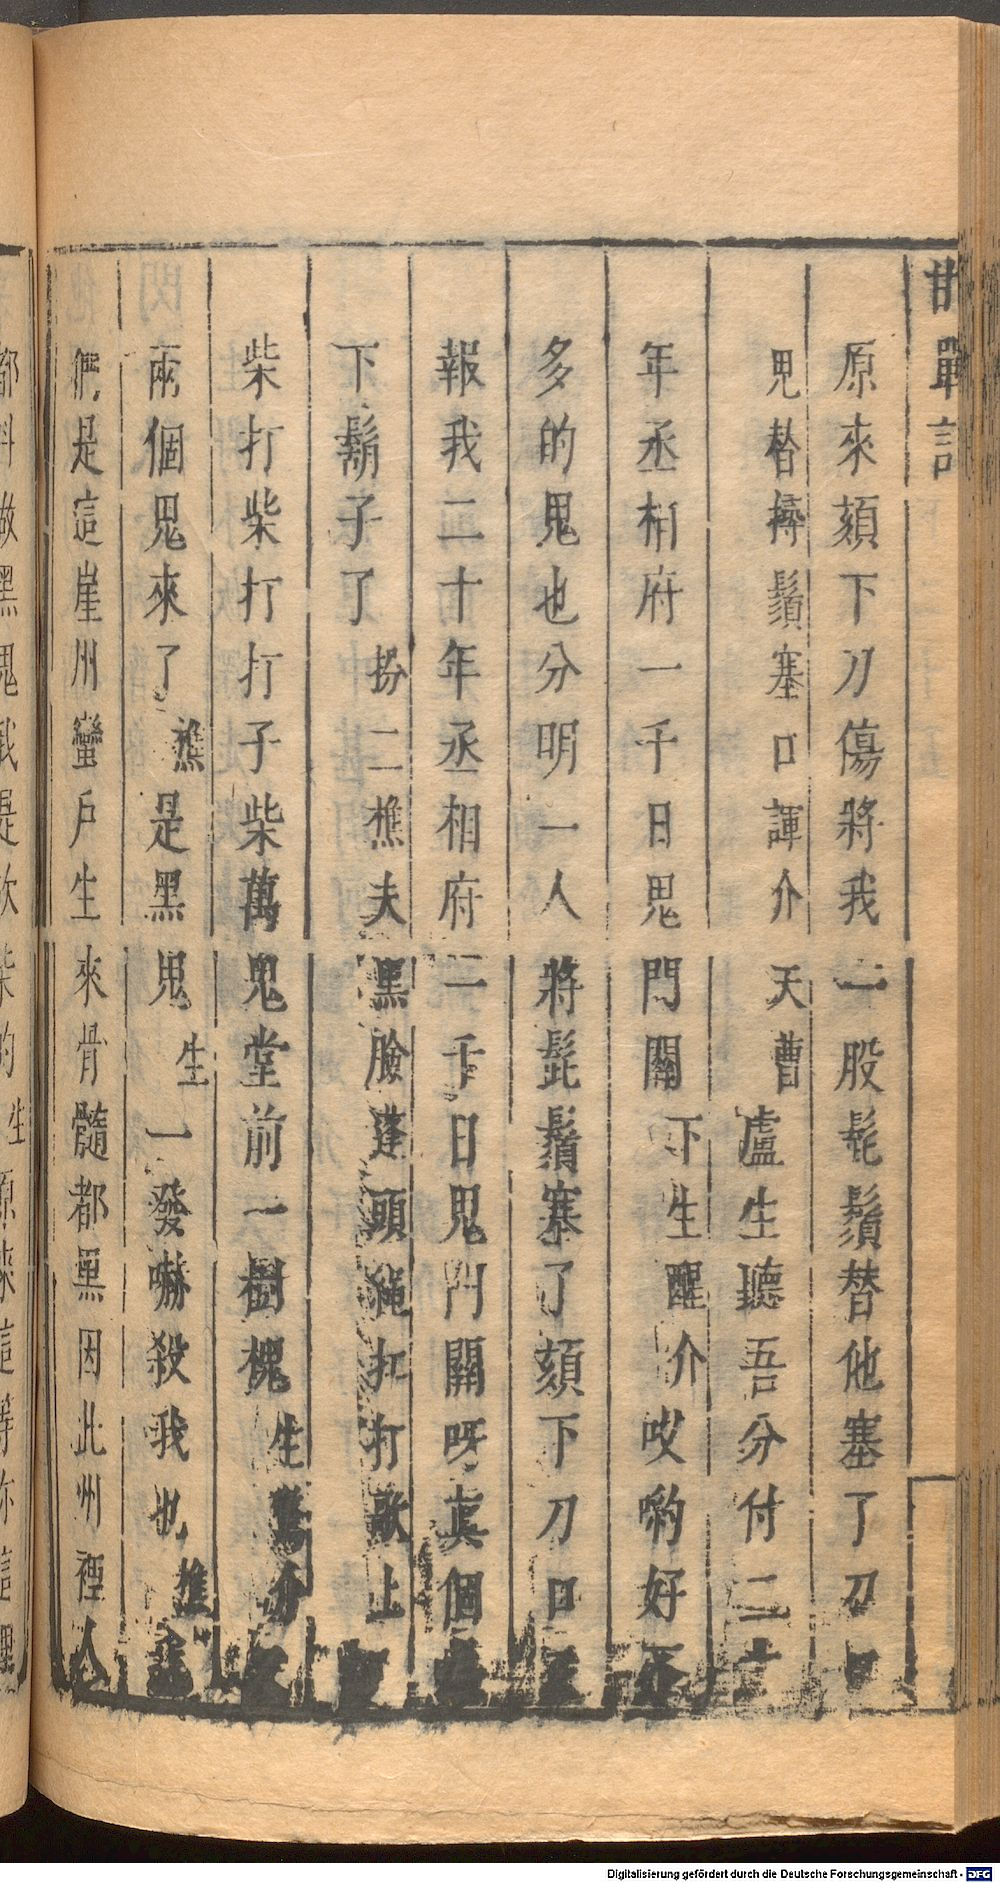 邯鄲記
原來頦下刀傷將我一股髭鬚替他塞了刀口
鬼替𢭏鬚塞口諢介天曹盧生聽吾分付二十
年丞相府一千日鬼門關下生醒介哎喲好不
多的鬼也分明一人將髭鬚塞了頦下刀口又
報我二十年丞相府一千日鬼門關呀真個
下鬍子了扮二樵夫黑臉蓬頭繩扛打歌上
柴打柴打打子柴萬鬼堂前一樹槐生驚介
兩個鬼來了樵是黑鬼生一發嚇殺我也樵
們是這崖州蠻戶生來骨髓都黑因此州裡人
都料做黑鬼我是砍柴的生原來這等你這裡
Digitalisierung gefördert durch die Deutsche Forschungsgemeinschaft - DFG